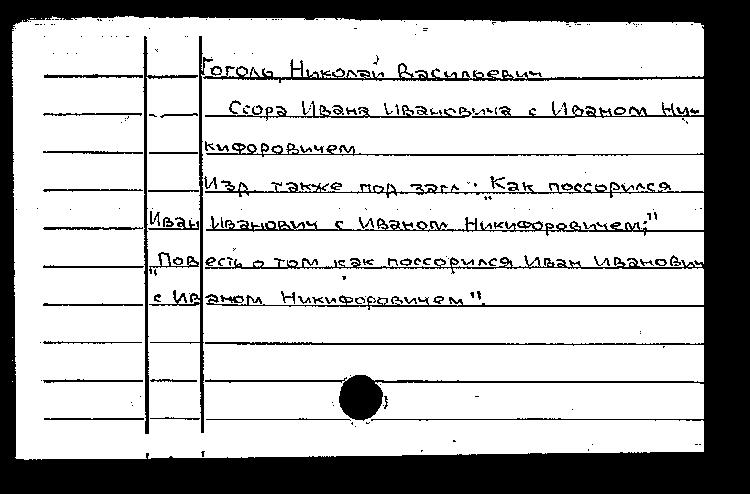 Гоголь, Николай Васильевич
Ссора Ивана Ивановича с Иваном Ни-
кифоровичем
Изд. также под загл.: „Как поссорился
Иван Иванович с Иваном Никифоровичем;"
„Повесть о том как поссорился Иван Иванович
с Иваном Никифоровичем".